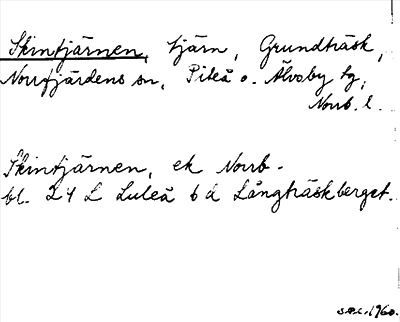 Skintjärnen, tjärn, Grundträsk,
Norrfjärdens sn, Piteå o. Älvsby tg,
Norrb. l.
Skintjärnen, ek Norrb.
bl. 24 L Luleå 6 d Långträskberget.
1960.